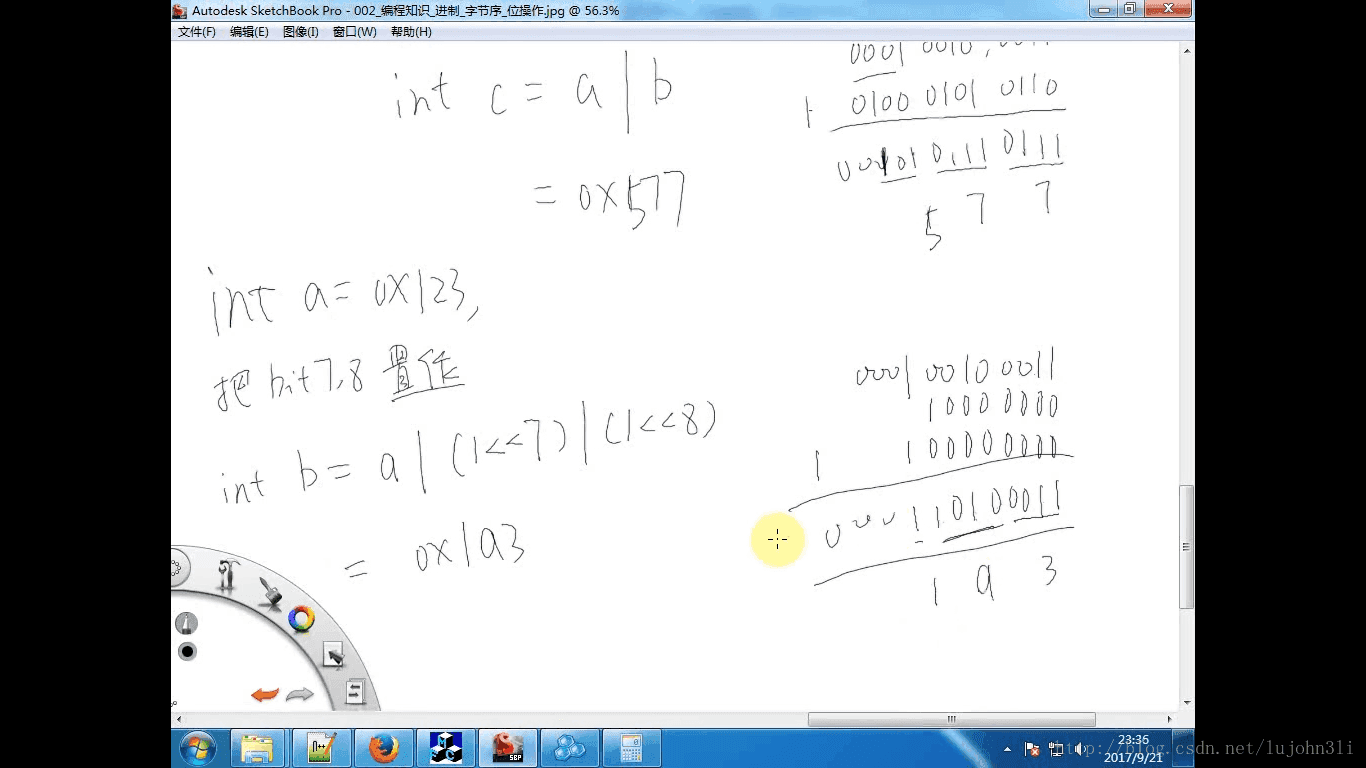 Autodesk SketchBook Pro - 002_编程知识_进制_字节序_位操作.jpg @ 56.3%
文件(F) 编辑(E) 图像(I) 窗口(W) 帮助(H)
int c = a | b
0001 0010
| 0100 0101 0110
0101 0111 0111
= 0x577
5 7 7
int a = 0x123,
把 bit7,8 置位
0001 0010 0011
1000 0000
int b = a | (1<<7) | (1<<8)
| 1 0000 0000
000110100011
= 0x1a3
1 a 3
SBP
23:36
2017/9/21
http://blog.csdn.net/lujohn3li